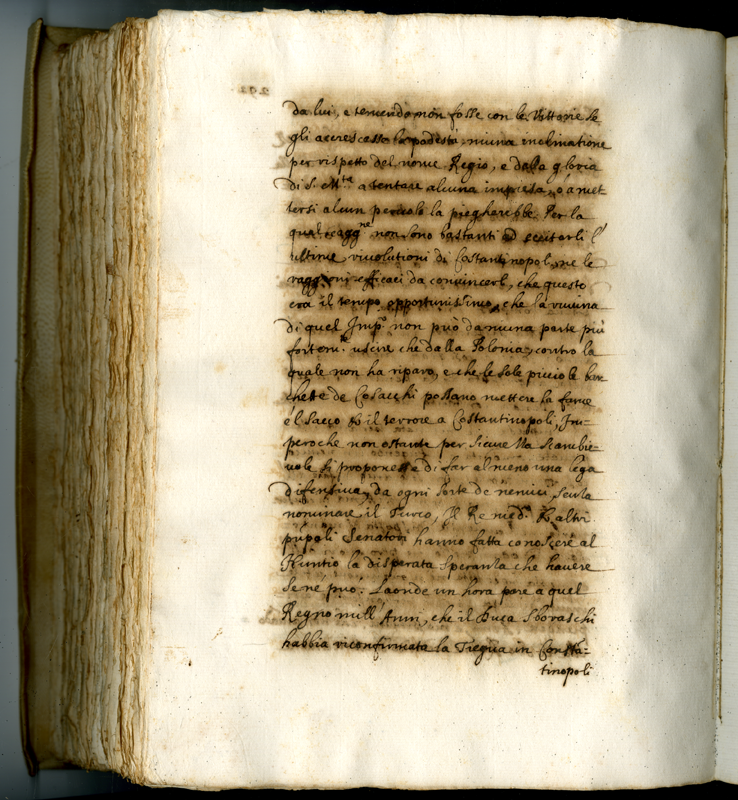 da lui, e temendo non fosse con le Vittorie se
gli accrescesse la podestà, niuna inclinatione
per rispetto del nome Regio, e dalla gloria
di S. M.tà a tentare alcuna impresa, o a met
tersi alcun pericolo la piegherebbe. Per la
qual cagg.ne non sono bastanti ad eccitarli l'
ultime rivolutioni di Costantinopoli, ne le
raggioni efficaci da convincerli, che questo
era il tempo opportunissimo, che la ruuina
di quel Imp.o non può da niuna parte più
fortem.te uscire che dalla Polonia, contro la
quale non ha riparo, e che le sole picciole bar
chette de Cosacchi possano mettere la fame
el sacco & il terrore a Costantinopoli, Im-
peroche non ostante per sicurezza scambie-
uole si proponesse di far almeno una lega
difensiva, da ogni sorte de nemici, senza
nominare il Turco, Il Re med.o & altri
pnpali Senatori hanno fatta conoscere al
Nuntio la disperata speranza che havere
se ne può. Laonde un'hora pare a quel
Regno mill'Anni, che il Duca Sboraschi
habbia riconfirmata la Tregua in Consta-
tinopoli